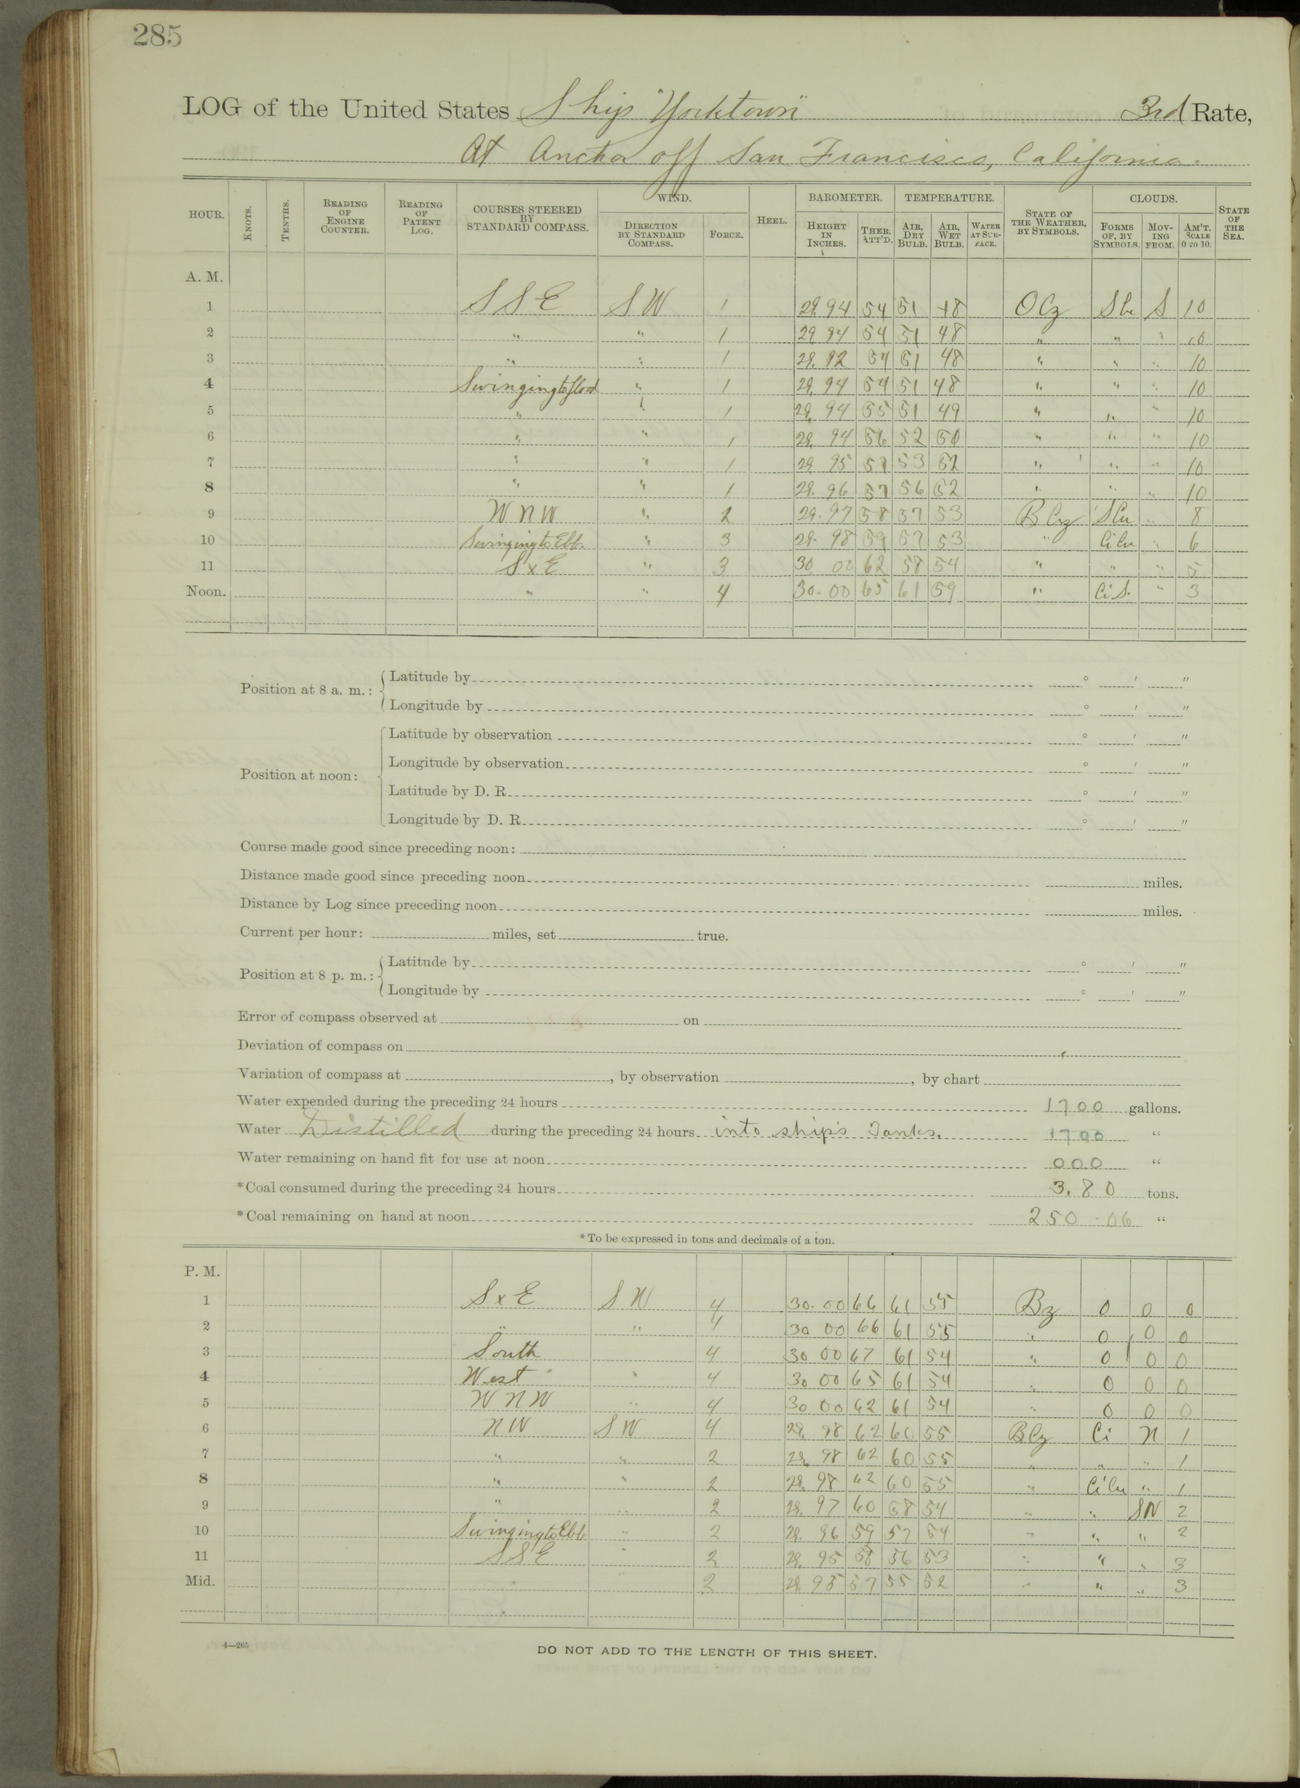 285
LOG of the United States Ship "Yorktown" 3rd Rate,
At Anchor off San Francisco, California.
HOUR. KNOTS. TENTHS. READING OF ENGINE COUNTER. READING OF PATENT LOG. COURSES STEERED BY STANDARD COMPASS. WIND. DIRECTION BY STANDARD COMPASS. FORCE. HEEL. BAROMETER. HEIGHT IN INCHES. THER. ATT'D. TEMPERATURE. AIR, DRY BULB. AIR, WET BULB. WATER AT SUR-FACE. STATE OF THE WEATHER, BY SYMBOLS. CLOUDS. FORMS OF, BY SYMBOLS. MOV-ING FROM. AM'T. SCALE 0 TO 10. STATE OF THE SEA.
A. M.
1 SSE SW 1 29.94 54 51 48 OCz SCu S 10
2 " " 1 29 94 54 51 48 " " " 10
3 " " 1 29.92 54 51 48 " " " 10
4 Swinging to flood " 1 29.94 54 51 48 " " " 10
5 " " 1 29.94 55 51 49 " " " 10
6 " " 1 29.94 56 52 50 " " " 10
7 " " 1 29.95 57 53 52 " " " 10
8 " " 1 29.96 57 56 52 " " " 10
9 WNW " 2 29.97 58 57 53 BCz SCu " 8
10 Swinging to Ebb. " 3 29.98 59 57 53 " CiCu " 6
11 SxE " 3 30 00 62 58 54 " " " 5
Noon. " " 4 30.00 65 61 59 " CiS. " 3
Position at 8 a. m.: Latitude by ° ' "
Longitude by ° ' "
Position at noon: Latitude by observation ° ' "
Longitude by observation ° ' "
Latitude by D. R. ° ' "
Longitude by D. R. ° ' "
Course made good since preceding noon:
Distance made good since preceding noon miles.
Distance by Log since preceding noon miles.
Current per hour: miles, set true.
Position at 8 p. m.: Latitude by ° ' "
Longitude by ° ' "
Error of compass observed at on
Deviation of compass on
Variation of compass at , by observation , by chart
Water expended during the preceding 24 hours 1700 gallons.
Water Distilled during the preceding 24 hours into ship's Tanks. 1700 "
Water remaining on hand fit for use at noon 000 "
*Coal consumed during the preceding 24 hours 3.80 tons.
*Coal remaining on hand at noon 250.06 "
*To be expressed in tons and decimals of a ton.
P. M.
1 SxE SW 4 30.00 66 61 55 Bz 0 0 0
2 " " 4 30 00 66 61 55 " 0 0 0
3 South 4 30 00 67 61 54 " 0 0 0
4 West " 4 30 00 65 61 54 " 0 0 0
5 WNW " 4 30 00 62 61 54 " 0 0 0
6 NW SW 4 29.98 62 60 55 BCz Ci N 1
7 " " 2 29.98 62 60 55 " " " 1
8 " " 2 29.98 62 60 55 " CiCu " 1
9 " " 2 29.97 60 58 54 " " SW 2
10 Swinging to Ebb " 2 29.96 59 57 54 " " " 2
11 SSE " 2 29.95 58 56 53 " " " 3
Mid. " " 2 29.95 57 55 52 " " " 3
4—265
DO NOT ADD TO THE LENGTH OF THIS SHEET.